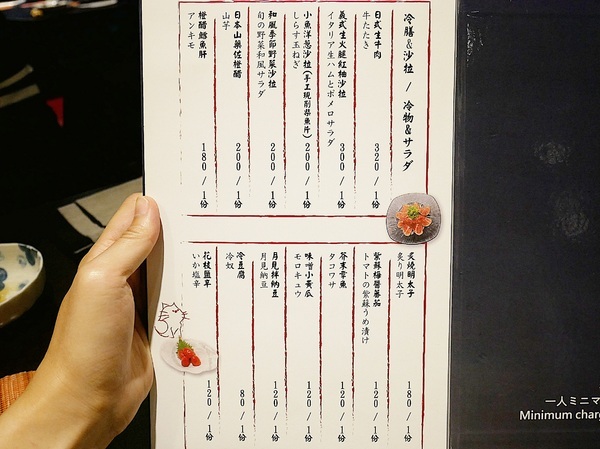 冷膳&沙拉 / 冷物&サラダ
日式生牛肉
牛たたき
320/1份
義式生火腿紅柚沙拉
イタリア生ハムとポメロサラダ
300/1份
小魚洋蔥沙拉(手工現削柴魚片)
しらす玉ねぎ
200/1份
和風季節野菜沙拉
旬の野菜和風サラダ
200/1份
日本山藥佐橙醋
山芋
200/1份
橙醋鱈魚肝
アンキモ
180/1份
炙燒明太子
炙り明太子
180/1份
紫蘇梅醬蕃茄
トマトの紫蘇うめ漬け
120/1份
芥末章魚
タコワサ
120/1份
味噌小黃瓜
モロキュウ
120/1份
月見拌納豆
月見納豆
120/1份
冷豆腐
冷奴
80/1份
花枝鹽辛
いか塩辛
120/1份
一人ミニマ
Minimum charg